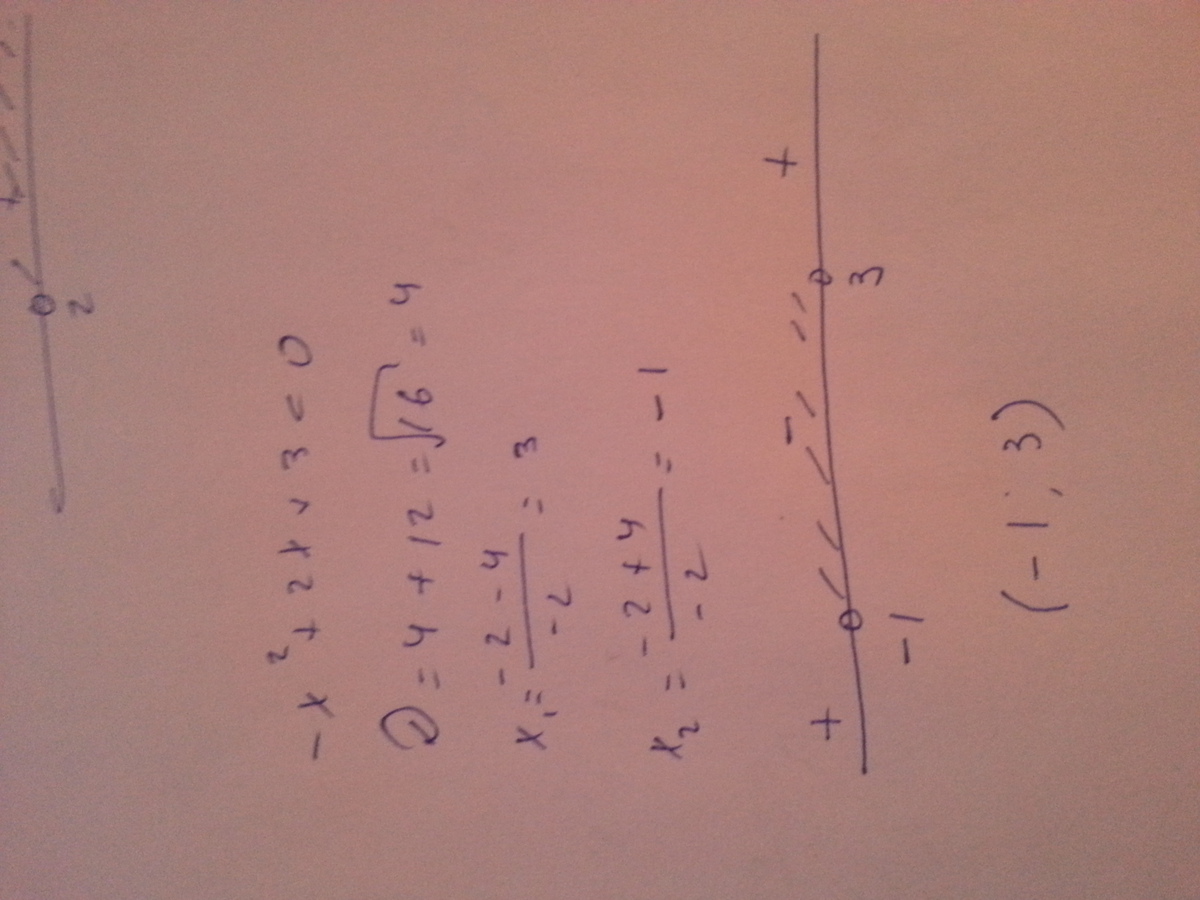 +
2
-x² + 2x + 3 < 0
D = 4 + 12 = √16 = 4
x₁ = (-2 - 4)/(-2) = 3
x₂ = (-2 + 4)/(-2) = -1
+ - +
-1 3
(-1; 3)